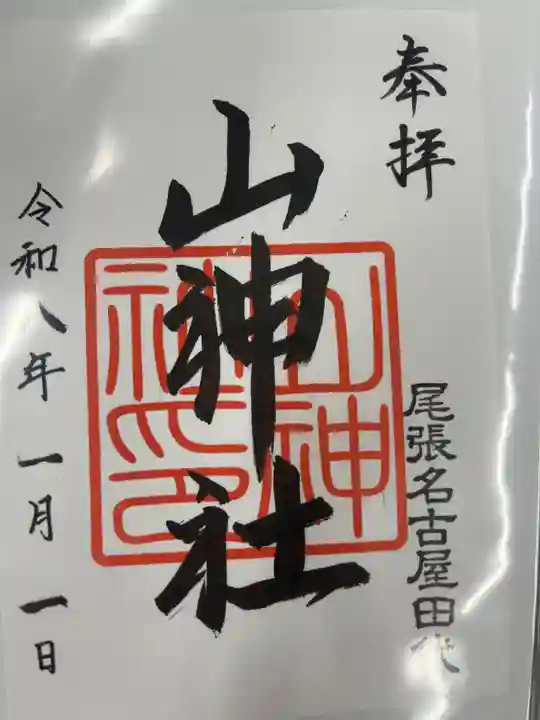 奉拝
尾張名古屋田代
山神社
山神社印
令和八年一月一日